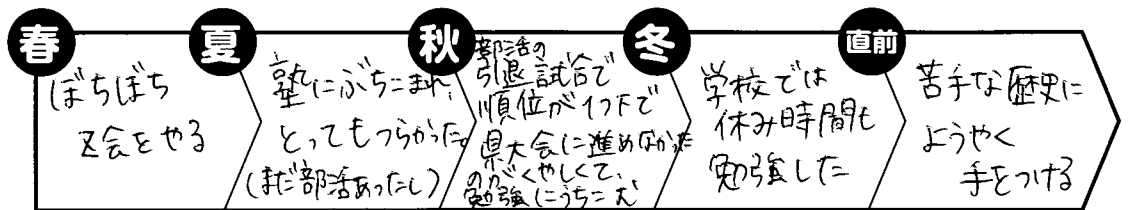 春
ぼちぼち
Z会をやる
夏
塾にぶちこまれ、
とってもつらかった。
(まだ部活あったし)
秋
部活の
引退試合で
順位が1つ下で
県大会に進めなかった
のがくやしくて、
勉強にうちこむ
冬
学校では
休み時間も
勉強した
直前
苦手な歴史に
ようやく
手をつける